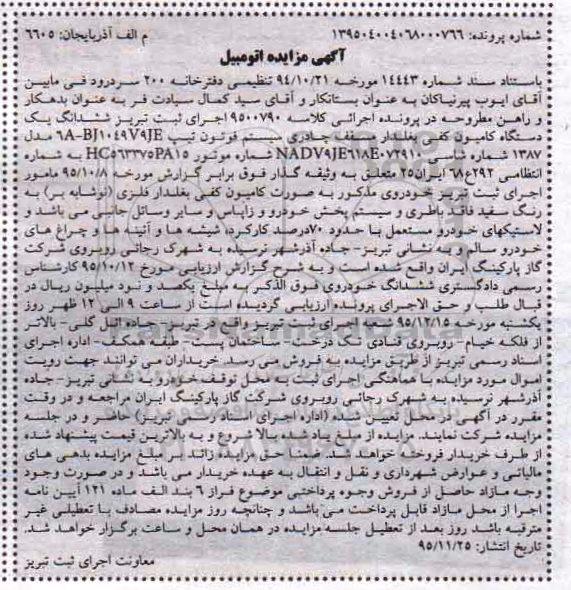 شماره پرونده: ۱۳۹۵۰۴۰۰۴۰۶۸۰۰۰۷۶۶
م الف آذربایجان: ۶۶۰۵
آگهی مزایده اتومبیل
باستناد سند شماره ۱۴۴۴۳ مورخه ۹۴/۱۰/۲۱ تنظیمی دفترخانه ۲۰۰ سردرود فی مابین
آقای ایوب پیرنیاکان به عنوان بستانکار و آقای سید کمال سیادت فر به عنوان بدهکار
و راهن مطروحه در پرونده اجرائی کلاسه ۹۵۰۰۷۹۰ اجرای ثبت تبریز ششدانگ یک
دستگاه کامیون کفی بغلدار مسقف چادری سیستم فوتون تیپ ۶A-BJ۱۰۴۹V۹JE مدل
۱۳۸۷ شماره شاسی NADV۹JE۶۱۸E۰۷۲۹۱۰ شماره موتور HC۵۶۳۳۷۵PA۱۵ به شماره
انتظامی ۲۹۲ع۶۸ ایران۲۵ متعلق به وثیقه گذار فوق برابر گزارش مورخه ۹۵/۱۰/۸ مامور
اجرای ثبت تبریز خودروی مذکور به صورت کامیون کفی بغلدار فلزی (نوشابه بر) به
رنگ سفید فاقد باطری و سیستم پخش خودرو و زاپاس و سایر وسائل جانبی می باشد و
لاستیکهای خودرو مستعمل با حدود ۷۰درصد کارکرد، شیشه ها و آئینه ها و چراغ های
خودرو سالم و به نشانی تبریز- جاده آذرشهر نرسیده به شهرک رجائی روبروی شرکت
گاز پارکینگ ایران واقع شده است و به شرح گزارش ارزیابی مورخ ۹۵/۱۰/۱۲ کارشناس
رسمی دادگستری ششدانگ خودروی فوق الذکر به مبلغ یکصد و نود میلیون ریال در
قبال طلب و حق الاجرای پرونده ارزیابی گردیده است از ساعت ۹ الی ۱۲ ظهر روز
یکشنبه مورخه ۹۵/۱۲/۱۵ در اجرای ثبت تبریز واقع در تبریز- جاده ائیل گلی- بالاتر
از فلکه خیام- روبروی قنادی تک درخت- ساختمان پست- طبقه همکف- اداره اجرای
اسناد رسمی تبریز از طریق مزایده به فروش می رسد. خریداران می توانند جهت رویت
اموال مورد مزایده با هماهنگی اجرای ثبت به محل توقف خودرو به نشانی تبریز- جاده
آذرشهر نرسیده به شهرک رجائی روبروی شرکت گاز پارکینگ ایران مراجعه و در وقت
مقرر در آگهی در محل تعیین شده (اداره اجرای اسناد رسمی تبریز) حاضر و در جلسه
مزایده شرکت نمایند. مزایده از مبلغ یاد شده بالا شروع و به بالاترین قیمت پیشنهاد شده
از طرف خریدار فروخته خواهد شد. ضمنا حق مزایده زائد بر مبلغ مزایده بدهی های
مالیاتی و عوارض شهرداری و نقل و انتقال به عهده خریدار می باشد و در صورت وجود
وجه مازاد حاصل از فروش وجوه پرداختی موضوع فراز ۶ بند الف ماده ۱۲۱ آیین نامه
اجرا از محل مازاد قابل پرداخت می باشد و چنانچه روز مزایده مصادف با تعطیلی غیر
مترقبه باشد روز بعد از تعطیل جلسه مزایده در همان محل و ساعت برگزار خواهد شد.
تاریخ انتشار: ۹۵/۱۱/۲۵
معاونت اجرای ثبت تبریز